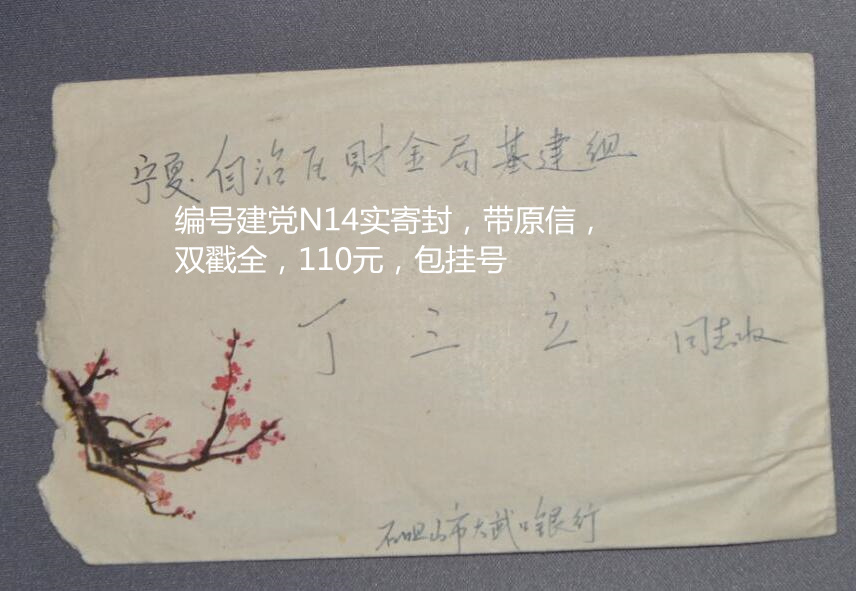 宁夏自治区財金局基建組
编号建党N14实寄封，带原信，
双戳全，110元，包挂号
丁三立 同志收
石咀山市大武口银行